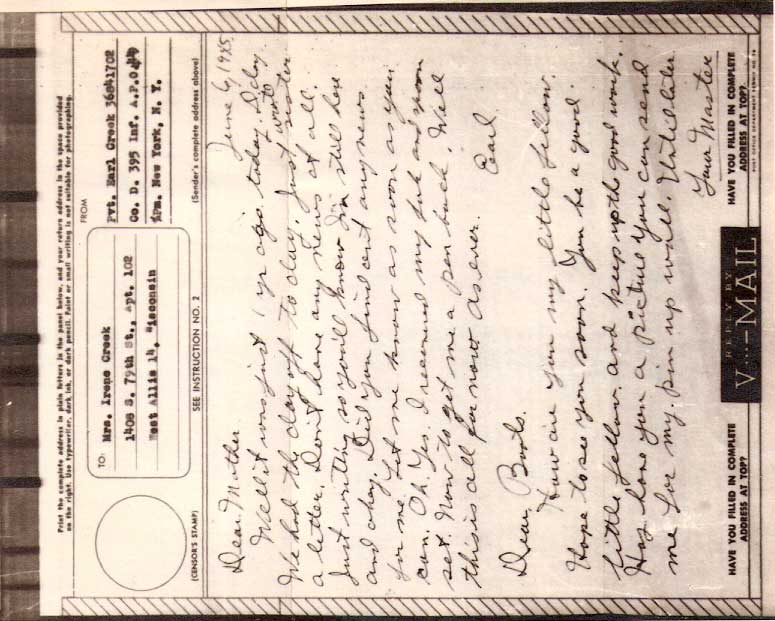 Print the complete address in plain letters in the panel below, and your return address in the space provided
on the right. Use typewriter, dark ink, or dark pencil. Faint or small writing is not suitable for photographing.
TO:
Mrs. Irene Creek
1408 S. 79th St., Apt. 102
West Allis 14, Wisconsin
FROM
Pvt. Earl Creek 36841702
Co. D. 395 Inf. A.P.O.
%pm. New York, N. Y.
(CENSOR'S STAMP)
SEE INSTRUCTION NO. 2
(Sender's complete address above)
June 6, 1945
Dear Mother
Well it was just 1 yr ago today D day
We had the day off to day. Just wrote sister
a letter. Don't have any news at all.
Just writing so you'll know I'm still here
and okay. Did you find out any news
for me. Let me know as soon as you
can. Oh. Yes. I received my and
set. Now to get me a pen back. Well
this is all for now as ever.
Earl
Dear, Boots.
How are you my little fellow.
Hope to see you soon. You be a good
little fellow. and keep up the good work.
Hay have you a picture you can send
me for my pin up wall. Until later
Your Master
HAVE YOU FILLED IN COMPLETE
ADDRESS AT TOP?
REPLY BY
V...-MAIL
HAVE YOU FILLED IN COMPLETE
ADDRESS AT TOP?
POST OFFICE DEPARTMENT PERMIT NO.